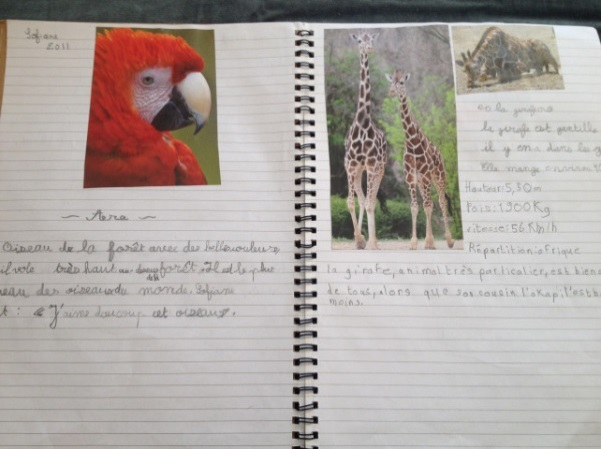 Sofiane
2011
~ Aera ~
Oiseau de la forêt avec des belles couleurs
il vole très haut au dessus forêt. Il est le plus
beau des oiseaux du monde. Sofiane
t: « J'aime baucoup cet oiseau.
oo la girafe
la girafe est gentille
il y en a dans les
Elle mange environ
Hauteur: 5,30m
Pois: 1900Kg
vitesse: 56 KM/h
Répartition: afrique
la girafe, animal très particulier, est bien
de tous, alors que son cousin l'okapi l'est
moins.